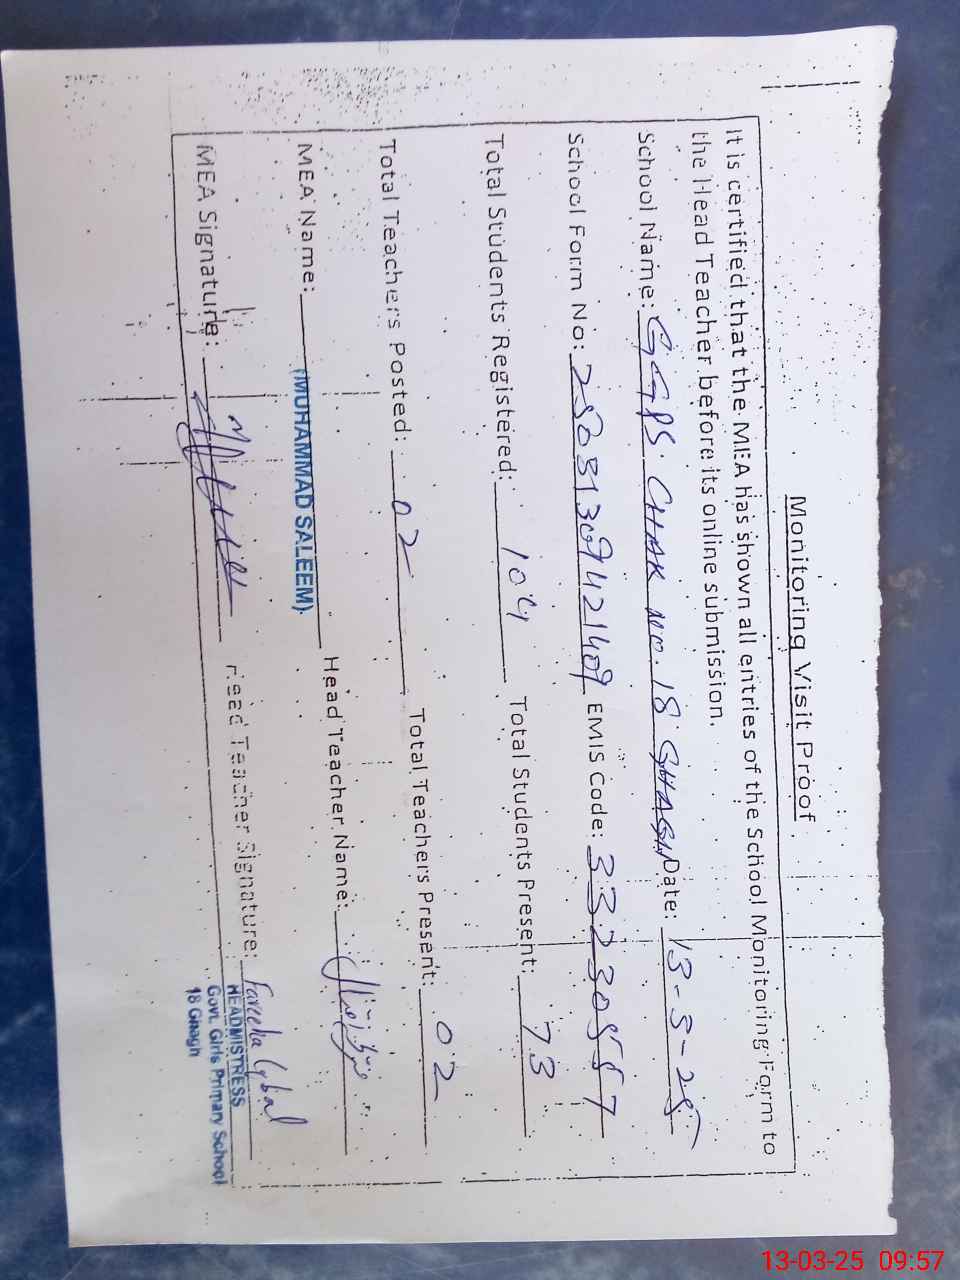 Monitoring Visit Proof
It is certified that the MEA has shown all entries of the School Monitoring Form to
the Head Teacher before its online submission.
School Name: GGPS CHAK NO. 18 GHAGH Date: 13-3-25
School Form No: 25031309421409 EMIS Code: 33230557
Total Students Registered: 104 Total Students Present: 73
Total Teachers Posted: 02 Total Teachers Present: 02
MEA Name: (MUHAMMAD SALEEM) Head Teacher Name:
MEA Signature: Head Teacher Signature: Fareeha Iqbal
HEADMISTRESS
Govt. Girls Primary School
18 Ghagh
13-03-25 09:57